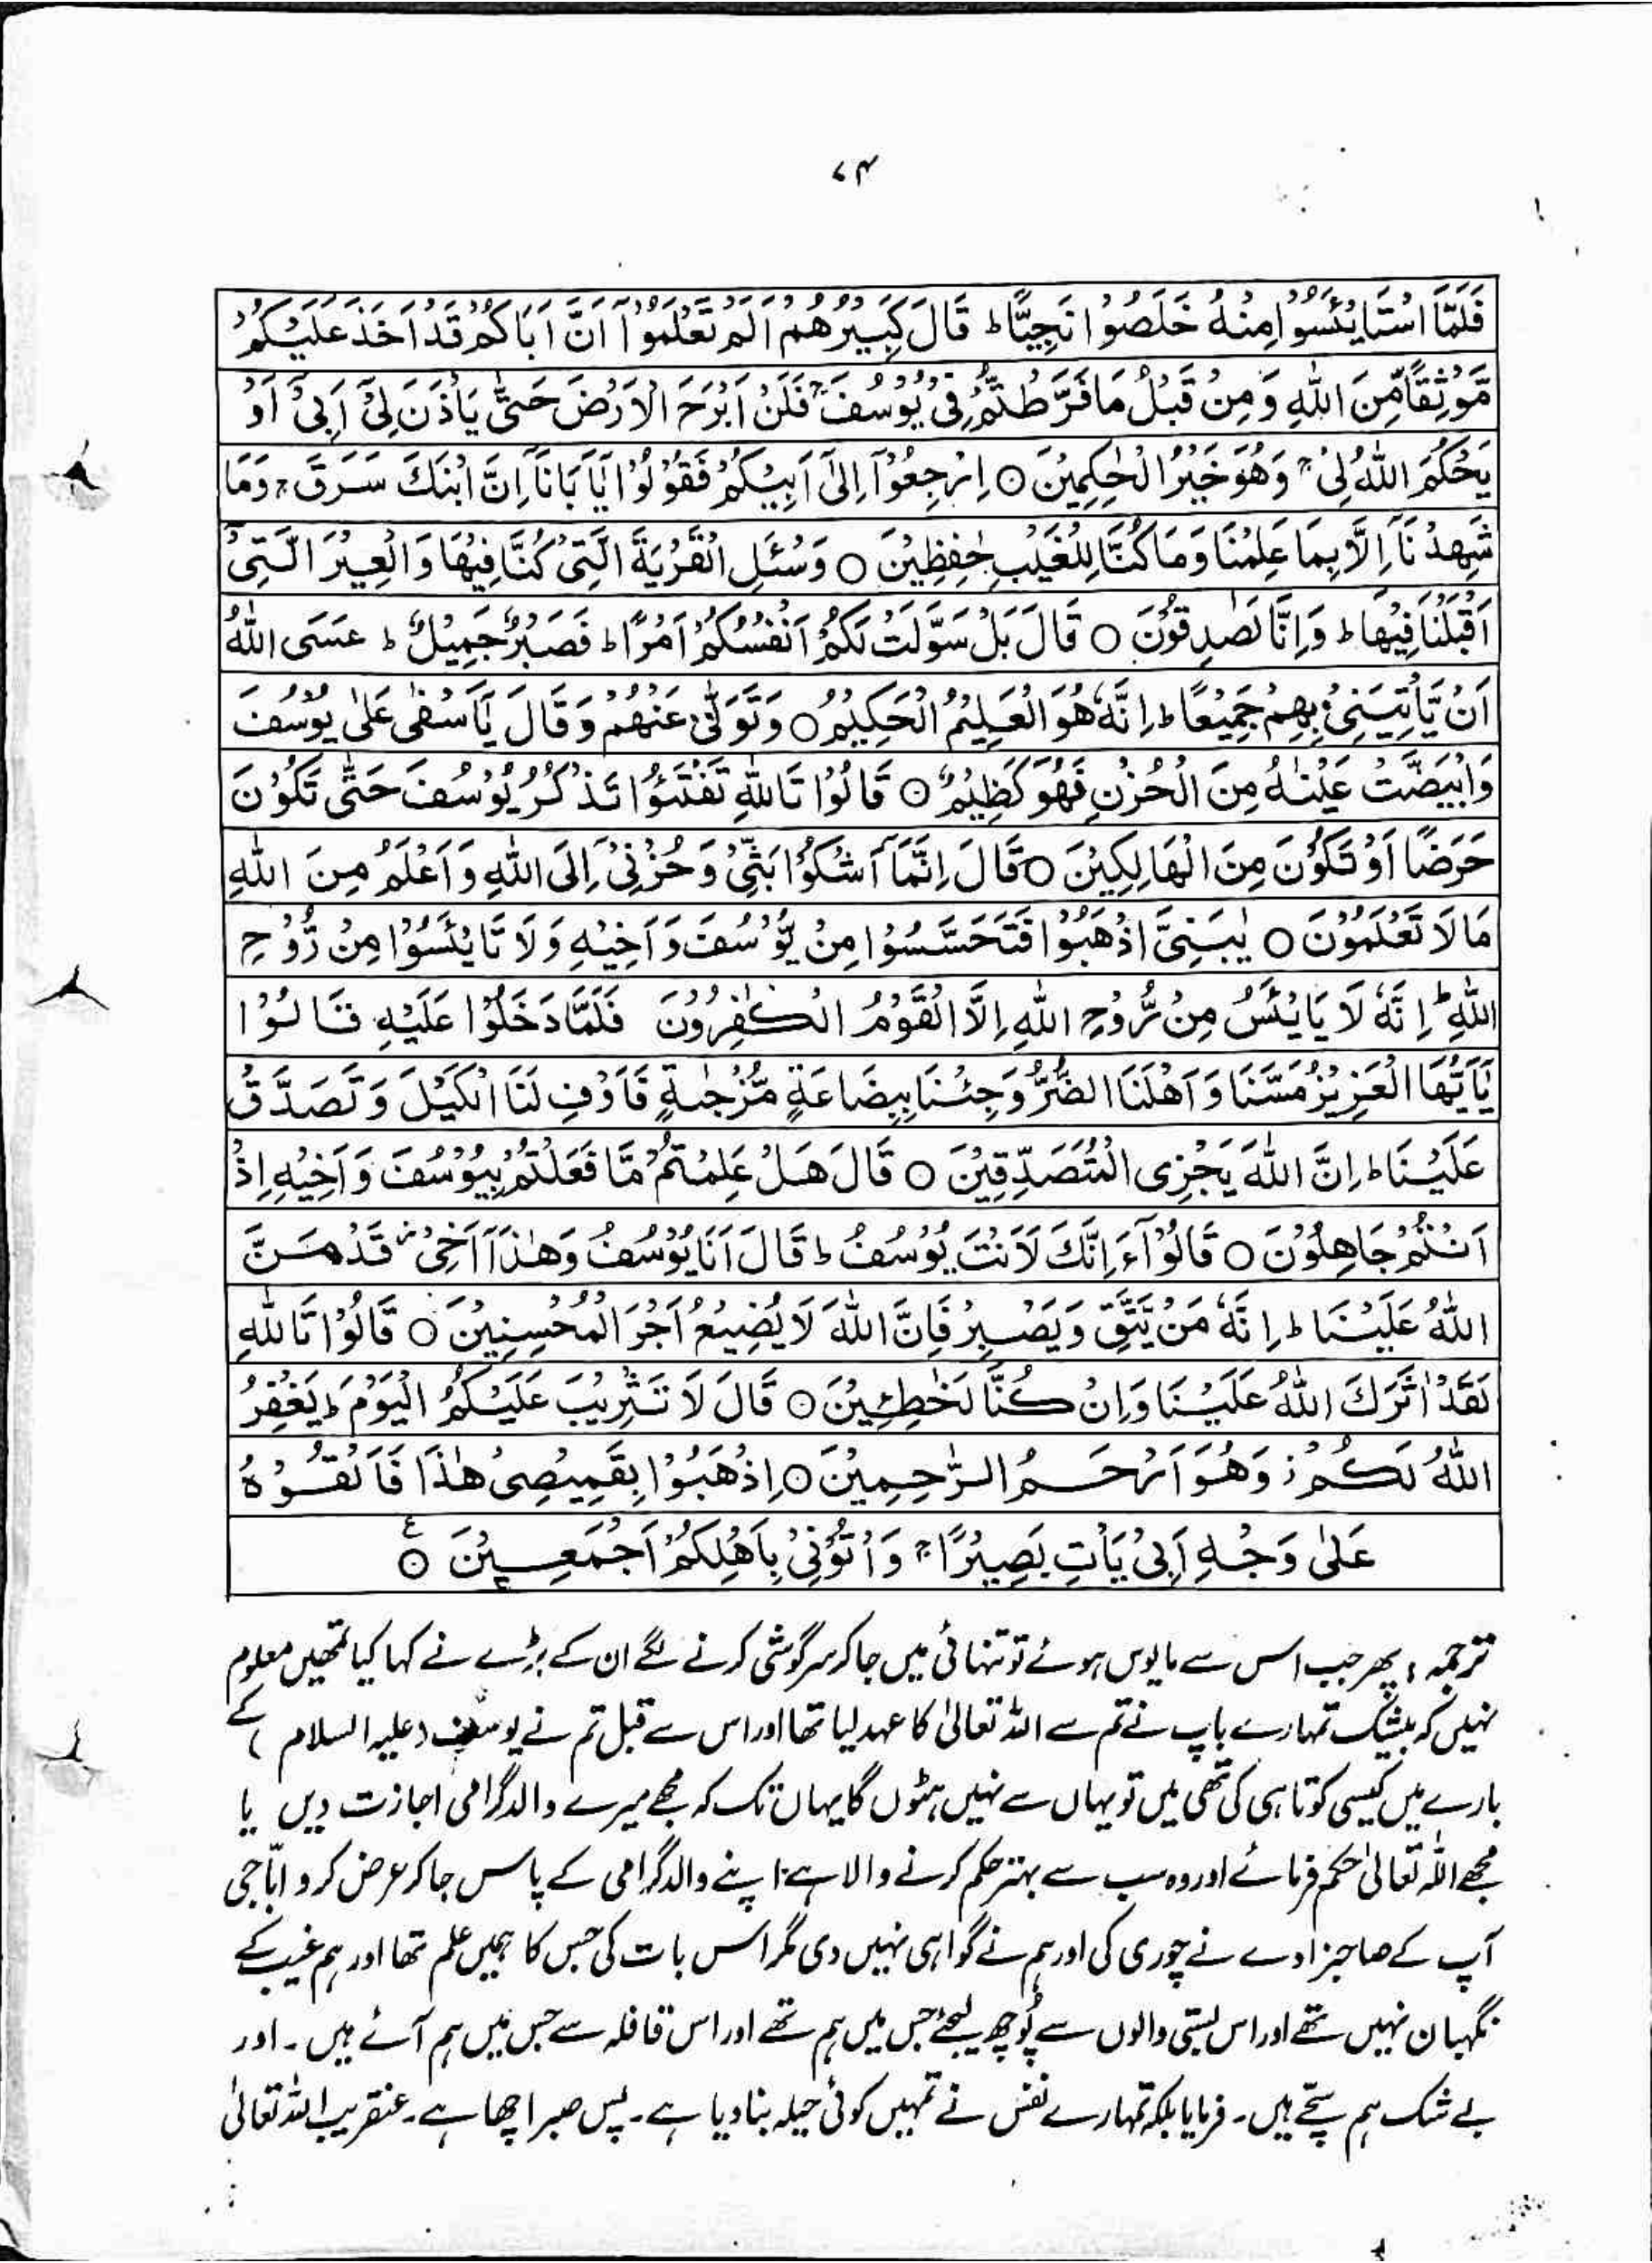 ۷۴
فَلَمَّا اسْتَايْئَسُوْا مِنْهُ خَلَصُوْا نَجِيًّا ط قَالَ كَبِيْرُهُمْ اَلَمْ تَعْلَمُوْآ اَنَّ اَبَاكُمْ قَدْ اَخَذَ عَلَيْكُمْ
مَّوْثِقًا مِّنَ اللّٰهِ وَمِنْ قَبْلُ مَا فَرَّطْتُّمْ فِيْ يُوْسُفَ ج فَلَنْ اَبْرَحَ الْاَرْضَ حَتّٰى يَاْذَنَ لِيْٓ اَبِيْٓ اَوْ
يَحْكُمَ اللّٰهُ لِيْ ج وَهُوَ خَيْرُ الْحٰكِمِيْنَ ○ اِرْجِعُوْآ اِلٰٓى اَبِيْكُمْ فَقُوْلُوْا يَآ اَبَانَآ اِنَّ ابْنَكَ سَرَقَ ج وَمَا
شَهِدْنَآ اِلَّا بِمَا عَلِمْنَا وَمَا كُنَّا لِلْغَيْبِ حٰفِظِيْنَ ○ وَسْئَلِ الْقَرْيَةَ الَّتِيْ كُنَّا فِيْهَا وَالْعِيْرَ الَّتِيْٓ
اَقْبَلْنَا فِيْهَا ط وَاِنَّا لَصٰدِقُوْنَ ○ قَالَ بَلْ سَوَّلَتْ لَكُمْ اَنْفُسُكُمْ اَمْرًا ط فَصَبْرٌ جَمِيْلٌ ط عَسَى اللّٰهُ
اَنْ يَّاْتِيَنِيْ بِهِمْ جَمِيْعًا ط اِنَّهٗ هُوَ الْعَلِيْمُ الْحَكِيْمُ ○ وَتَوَلّٰى عَنْهُمْ وَقَالَ يَآ اَسَفٰى عَلٰى يُوْسُفَ
وَابْيَضَّتْ عَيْنٰهُ مِنَ الْحُزْنِ فَهُوَ كَظِيْمٌ ○ قَالُوْا تَاللّٰهِ تَفْتَؤُا تَذْكُرُ يُوْسُفَ حَتّٰى تَكُوْنَ
حَرَضًا اَوْ تَكُوْنَ مِنَ الْهَالِكِيْنَ ○ قَالَ اِنَّمَآ اَشْكُوْا بَثِّيْ وَحُزْنِيْٓ اِلَى اللّٰهِ وَاَعْلَمُ مِنَ اللّٰهِ
مَا لَا تَعْلَمُوْنَ ○ يٰبَنِيَّ اذْهَبُوْا فَتَحَسَّسُوْا مِنْ يُّوْسُفَ وَاَخِيْهِ وَلَا تَايْئَسُوْا مِنْ رَّوْحِ
اللّٰهِ ط اِنَّهٗ لَا يَايْئَسُ مِنْ رَّوْحِ اللّٰهِ اِلَّا الْقَوْمُ الْكٰفِرُوْنَ فَلَمَّا دَخَلُوْا عَلَيْهِ قَالُوْا
يٰٓاَيُّهَا الْعَزِيْزُ مَسَّنَا وَاَهْلَنَا الضُّرُّ وَجِئْنَا بِبِضَاعَةٍ مُّزْجٰىةٍ فَاَوْفِ لَنَا الْكَيْلَ وَتَصَدَّقْ
عَلَيْنَا ط اِنَّ اللّٰهَ يَجْزِى الْمُتَصَدِّقِيْنَ ○ قَالَ هَلْ عَلِمْتُمْ مَّا فَعَلْتُمْ بِيُوْسُفَ وَاَخِيْهِ اِذْ
اَنْتُمْ جَاهِلُوْنَ ○ قَالُوْآ ءَاِنَّكَ لَاَنْتَ يُوْسُفُ ط قَالَ اَنَا يُوْسُفُ وَهٰذَآ اَخِيْ ز قَدْ مَنَّ
اللّٰهُ عَلَيْنَا ط اِنَّهٗ مَنْ يَّتَّقِ وَيَصْبِرْ فَاِنَّ اللّٰهَ لَا يُضِيْعُ اَجْرَ الْمُحْسِنِيْنَ ○ قَالُوْا تَاللّٰهِ
لَقَدْ اٰثَرَكَ اللّٰهُ عَلَيْنَا وَاِنْ كُنَّا لَخٰطِئِيْنَ ○ قَالَ لَا تَثْرِيْبَ عَلَيْكُمُ الْيَوْمَ ط يَغْفِرُ
اللّٰهُ لَكُمْ ز وَهُوَ اَرْحَمُ الرّٰحِمِيْنَ ○ اِذْهَبُوْا بِقَمِيْصِىْ هٰذَا فَاَلْقُوْهُ
عَلٰى وَجْهِ اَبِيْ يَاْتِ بَصِيْرًا ج وَاْتُوْنِيْ بِاَهْلِكُمْ اَجْمَعِيْنَ ○ ع
ترجمہ : پھر جب اس سے مایوس ہوئے تو تنہائی میں جا کر سرگوشی کرنے لگے ان کے بڑے نے کہا کیا تمھیں معلوم
نہیں کہ بیشک تمہارے باپ نے تم سے اللہ تعالیٰ کا عہد لیا تھا اور اس سے قبل تم نے یوسف (علیہ السلام) کے
بارے میں کیسی کوتاہی کی تھی میں تو یہاں سے نہیں ہٹوں گا یہاں تک کہ مجھے میرے والد گرامی اجازت دیں یا
مجھے اللہ تعالیٰ حکم فرمائے اور وہ سب سے بہتر حکم کرنے والا ہے: اپنے والد گرامی کے پاس جا کر عرض کرو ابّا جی
آپ کے صاحبزادے نے چوری کی اور ہم نے گواہی نہیں دی مگر اس بات کی جس کا ہمیں علم تھا اور ہم غیب کے
نگہبان نہیں تھے اور اس بستی والوں سے پُوچھ لیجئے جس میں ہم تھے اور اس قافلہ سے جس میں ہم آئے ہیں ۔ اور
بے شک ہم سچّے ہیں ۔ فرمایا بلکہ تمہارے نفس نے تمہیں کوئی حیلہ بنا دیا ہے ۔ پس صبر اچھا ہے ۔ عنقریب اللہ تعالیٰ